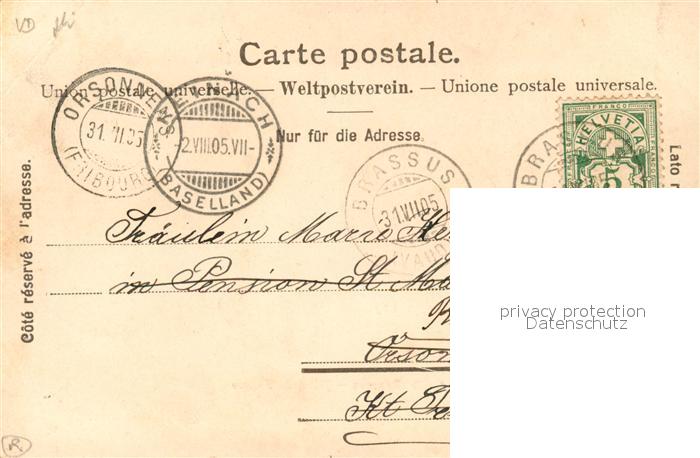 VD
Carte postale.
Union postale universelle. — Weltpostverein. — Unione postale universale.
Nur für die Adresse.
ORSONNENS
31. VII 05
(FRIBOURG)
2.VIII.05.VII-
(BASELLAND)
BRASSUS
31.VII.05
(VAUD)
BRASSUS
FRANCO
HELVETIA
5
Côté réservé à l'adresse.
Lato
Fräulein Marie
in Pension St
Orson
Kt
R.
privacy protection
Datenschutz